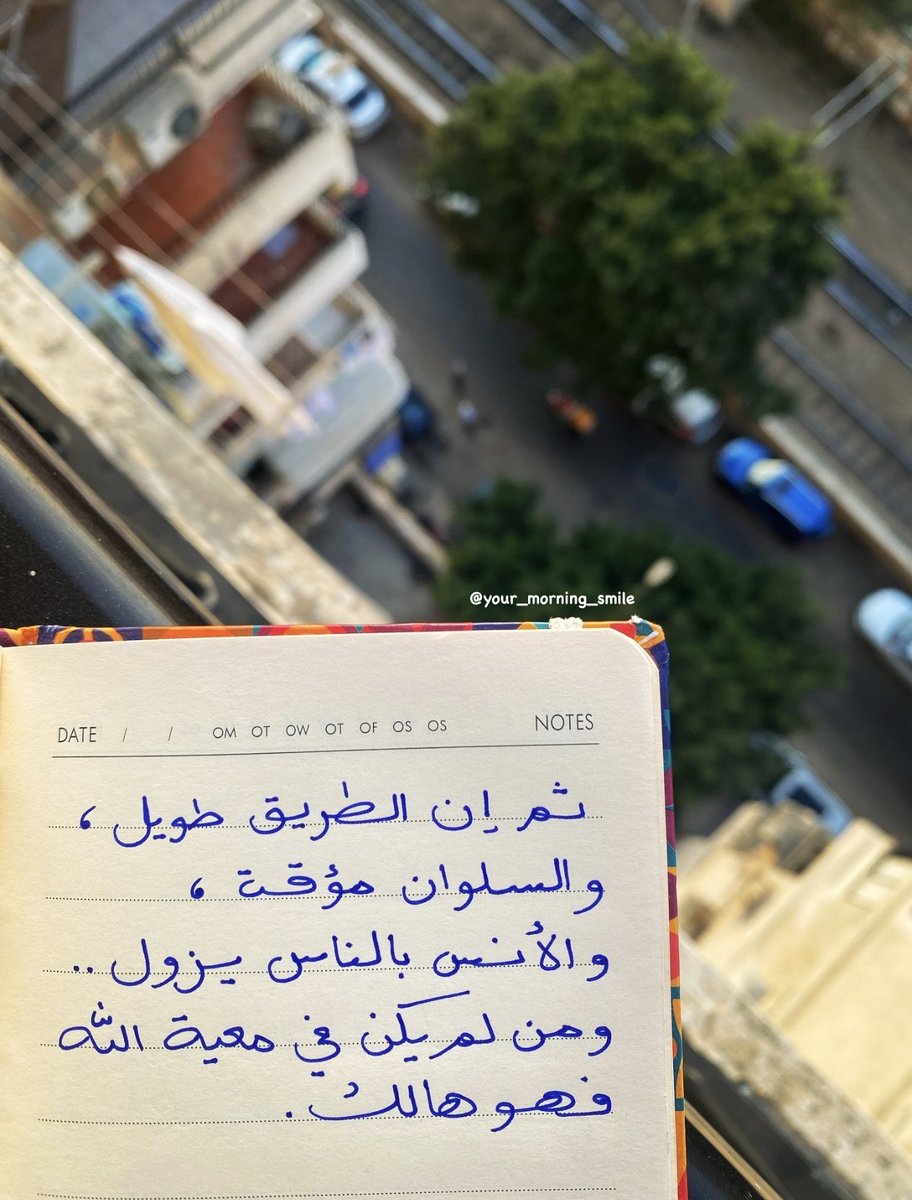 @your_morning_smile
DATE / / OM OT OW OT OF OS OS NOTES
ثم إن الطريق طويل ،
والسلوان مؤقت ،
والأنس بالناس يزول ..
ومن لم يكن في معية الله
فهو هالك .